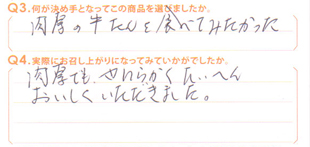 Q3.何が決め手となってこの商品を選びましたか。
肉厚の牛たんを食べてみたかった
Q4.実際にお召し上がりになってみていかがでしたか。
肉厚でも、やわらかくたいへん
おいしくいただきました。